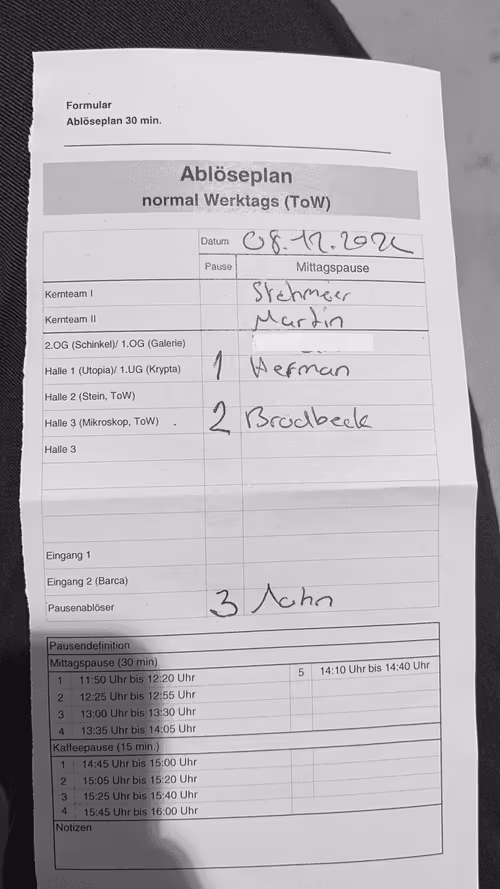 Formular
Ablöseplan 30 min.
Ablöseplan
normal Werktags (ToW)
Datum 08.12.2022
Pause Mittagspause
Kernteam I Stehmeier
Kernteam II Martin
2.OG (Schinkel)/ 1.OG (Galerie)
Halle 1 (Utopia)/ 1.UG (Krypta) 1 Herman
Halle 2 (Stein, ToW)
Halle 3 (Mikroskop, ToW) 2 Brodbeck
Halle 3
Eingang 1
Eingang 2 (Barca)
Pausenablöser 3
Pausendefinition
Mittagspause (30 min)
1 11:50 Uhr bis 12:20 Uhr 5 14:10 Uhr bis 14:40 Uhr
2 12:25 Uhr bis 12:55 Uhr
3 13:00 Uhr bis 13:30 Uhr
4 13:35 Uhr bis 14:05 Uhr
Kaffeepause (15 min.)
1 14:45 Uhr bis 15:00 Uhr
2 15:05 Uhr bis 15:20 Uhr
3 15:25 Uhr bis 15:40 Uhr
4 15:45 Uhr bis 16:00 Uhr
Notizen